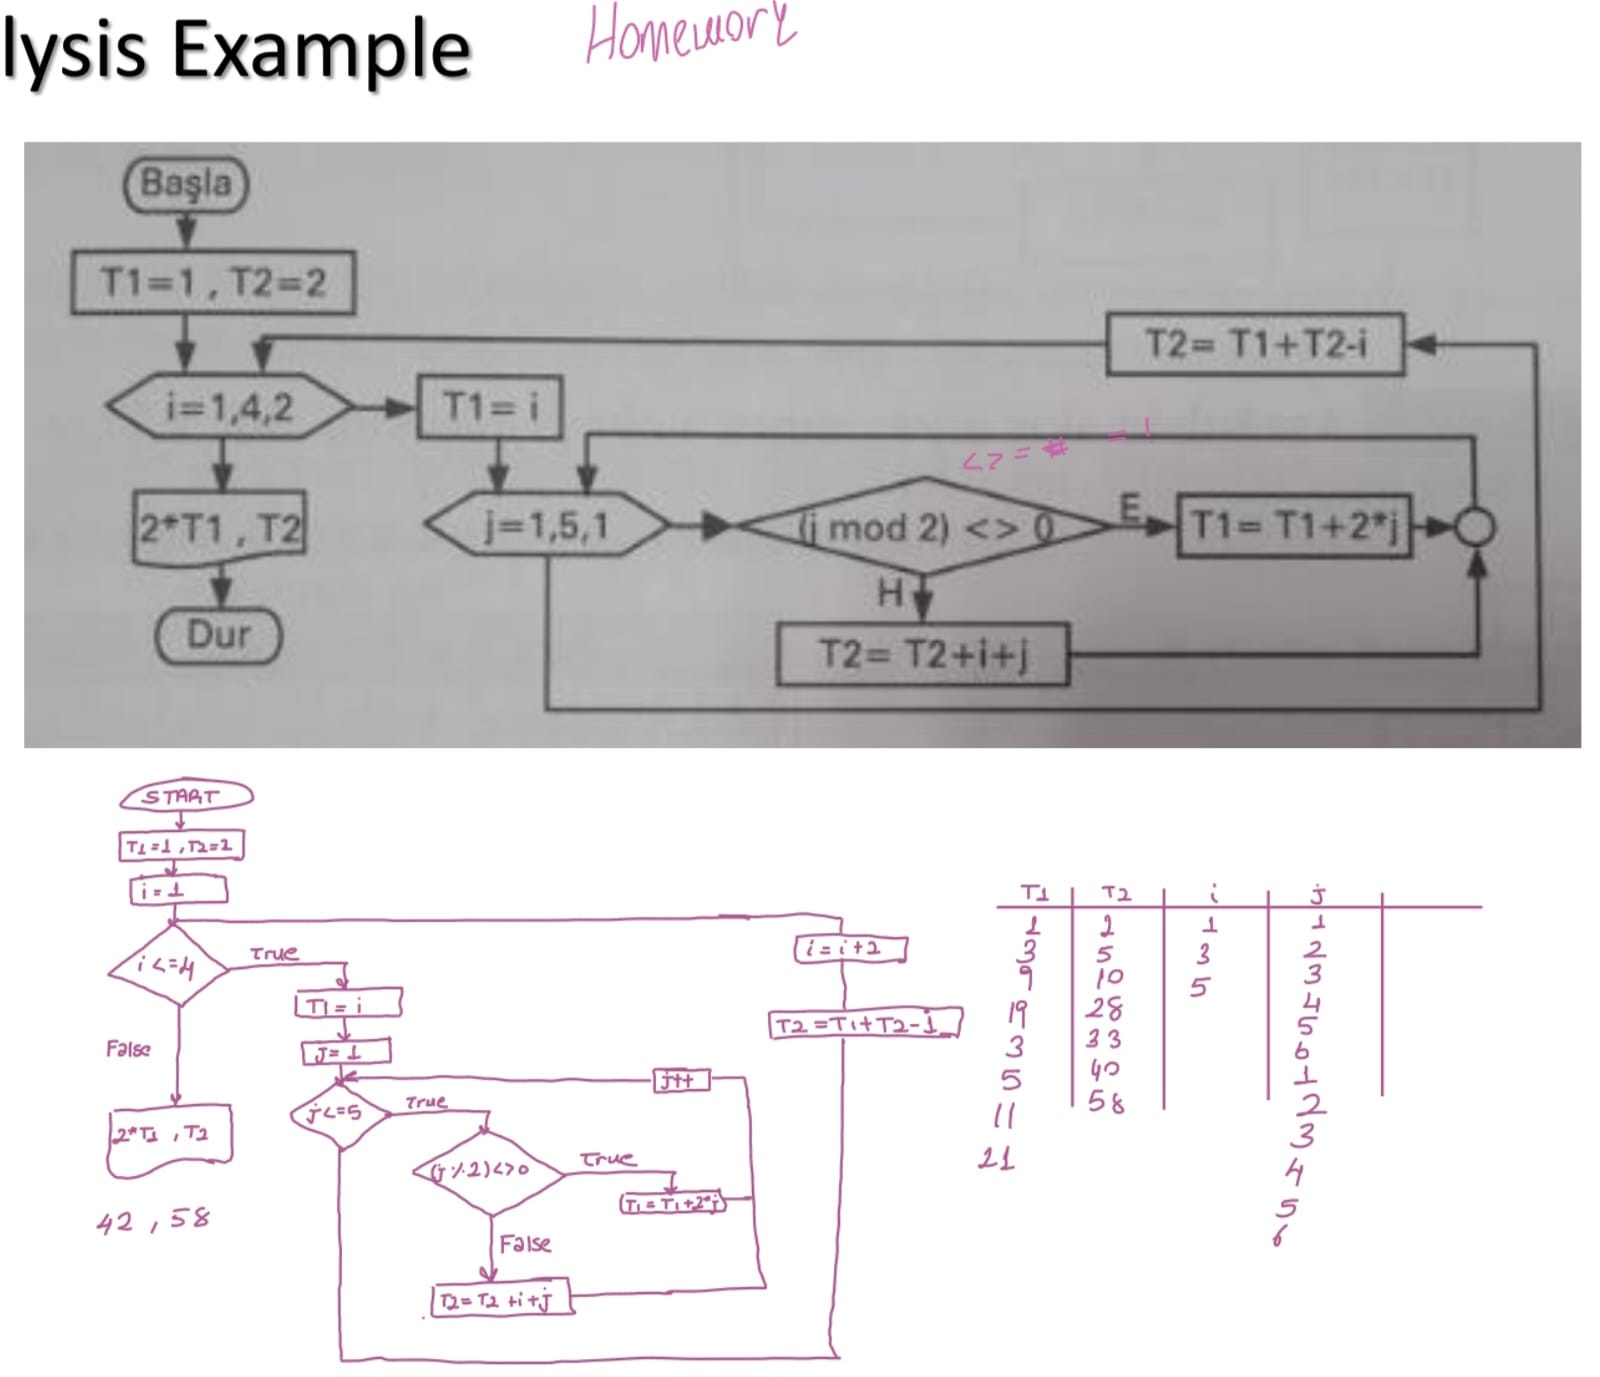 lysis Example
Homework
Başla
T1=1, T2=2
T2= T1+T2-i
i=1,4,2
T1= i
<> = ≠ = !
2*T1, T2
j=1,5,1
(j mod 2) <> 0
E
T1= T1+2*j
H
Dur
T2= T2+i+j
START
T1=1, T2=2
i=1
i<=4
True
T1=i
J=1
False
j<=5
True
j++
(j%2)<>0
True
T1=T1+2*j
False
T2=T2+i+j
2*T1, T2
42, 58
i=i+2
T2=T1+T2-i
T1 T2 i j
1 2 1 1
3 5 3 2
9 10 5 3
19 28 4
3 33 5
5 40 6
11 58 1
21 2
3
4
5
6